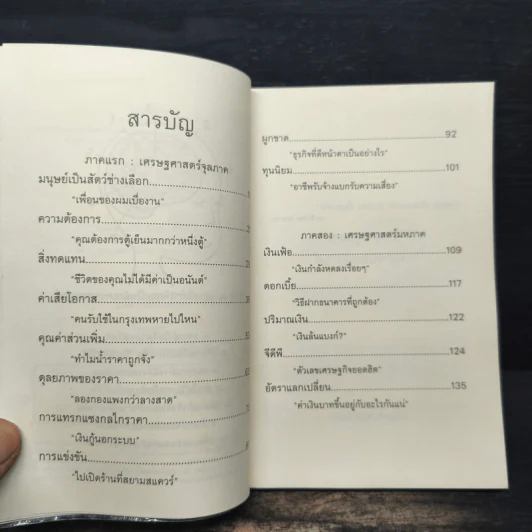 สารบัญ
ภาคแรก : เศรษฐศาสตร์จุลภาค
มนุษย์เป็นสัตว์ช่างเลือก
"เพื่อนของผมเบื่องาน"
ความต้องการ
"คุณต้องการตู้เย็นมากกว่าหนึ่งตู้"
สิ่งทดแทน
"ชีวิตของคุณไม่ได้มีค่าเป็นอนันต์"
ค่าเสียโอกาส
"คนรับใช้ในกรุงเทพหายไปไหน"
คุณค่าส่วนเพิ่ม
"ทำไมน้ำราคาถูกจัง"
ดุลยภาพของราคา
"ลองกองแพงกว่าลางสาด"
การแทรกแซงกลไกราคา
"เงินกู้นอกระบบ"
การแข่งขัน
"ไปเปิดร้านที่สยามสแควร์"
ผูกขาด 92
"ธุรกิจที่ดีหน้าตาเป็นอย่างไร"
ทุนนิยม 101
"อาชีพรับจ้างแบกรับความเสี่ยง"
ภาคสอง : เศรษฐศาสตร์มหภาค
เงินเฟ้อ 109
"เงินกำลังหดลงเรื่อยๆ"
ดอกเบี้ย 117
"วิธีฝากธนาคารที่ถูกต้อง"
ปริมาณเงิน 122
"เงินล้นแบงก์?"
จีดีพี 124
"ตัวเลขเศรษฐกิจยอดฮิต"
อัตราแลกเปลี่ยน 135
"ค่าเงินบาทขึ้นอยู่กับอะไรกันแน่"